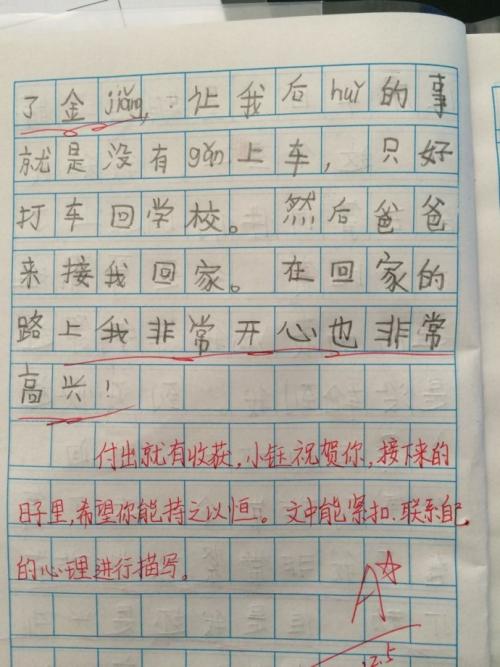 了金jiǎng,让我后huǐ的事
就是没有gǎn上车,只好
打车回学校。然后爸爸
来接我回家。在回家的
路上我非常开心也非常
高兴!
付出就有收获,小钰祝贺你,接下来的
日子里,希望你能持之以恒。文中能紧扣、联系自己
的心理进行描写。
A☆
12.5